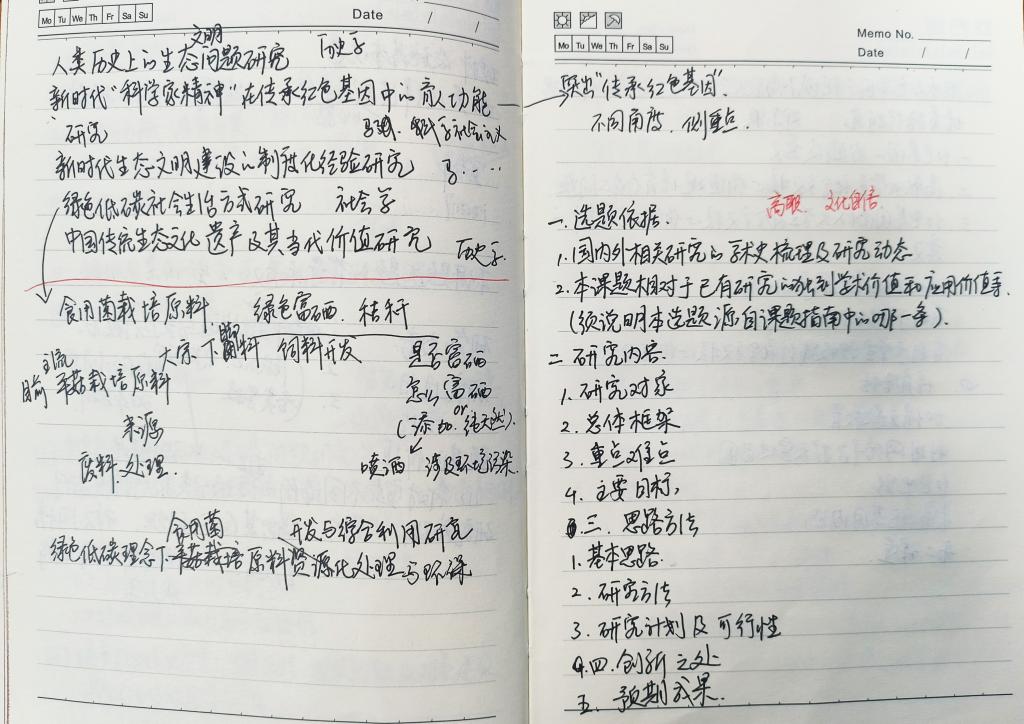 Mo Tu We Th Fr Sa Su
Date / /
人类历史上的生态文明问题研究 历史学
新时代“科学家精神”在传承红色基因中的育人功能
研究 马列、科学社会主义
新时代生态文明建设的制度化经验研究 马····
绿色低碳社会生活方式研究 社会学
中国传统生态文化遗产及其当代价值研究 历史学.
食用菌栽培原料 绿色富硒. 秸秆
大宗下脚料 饲料开发 是否富硒
目前主流平菇栽培原料 怎么富硒
来源 (添加 or 纯天然).
废料处理. 喷洒 涉及环境污染.
食用菌 开发与综合利用研究
绿色低碳理念下平菇栽培原料资源化处理与环保
Mo Tu We Th Fr Sa Su
Memo No.
Date / /
突出“传承红色基因”.
不同角度、侧重点.
高职、文化自信
一. 选题依据.
1. 国内外相关研究的学术史梳理及研究动态
2. 本课题相对于已有研究的独到学术价值和应用价值等
(须说明本选题源自课题指南中的哪一条).
二. 研究内容.
1. 研究对象
2. 总体框架
3. 重点难点
4. 主要目标,
三. 思路方法
1. 基本思路.
2. 研究方法
3. 研究计划及可行性
四. 创新之处
五. 预期成果.